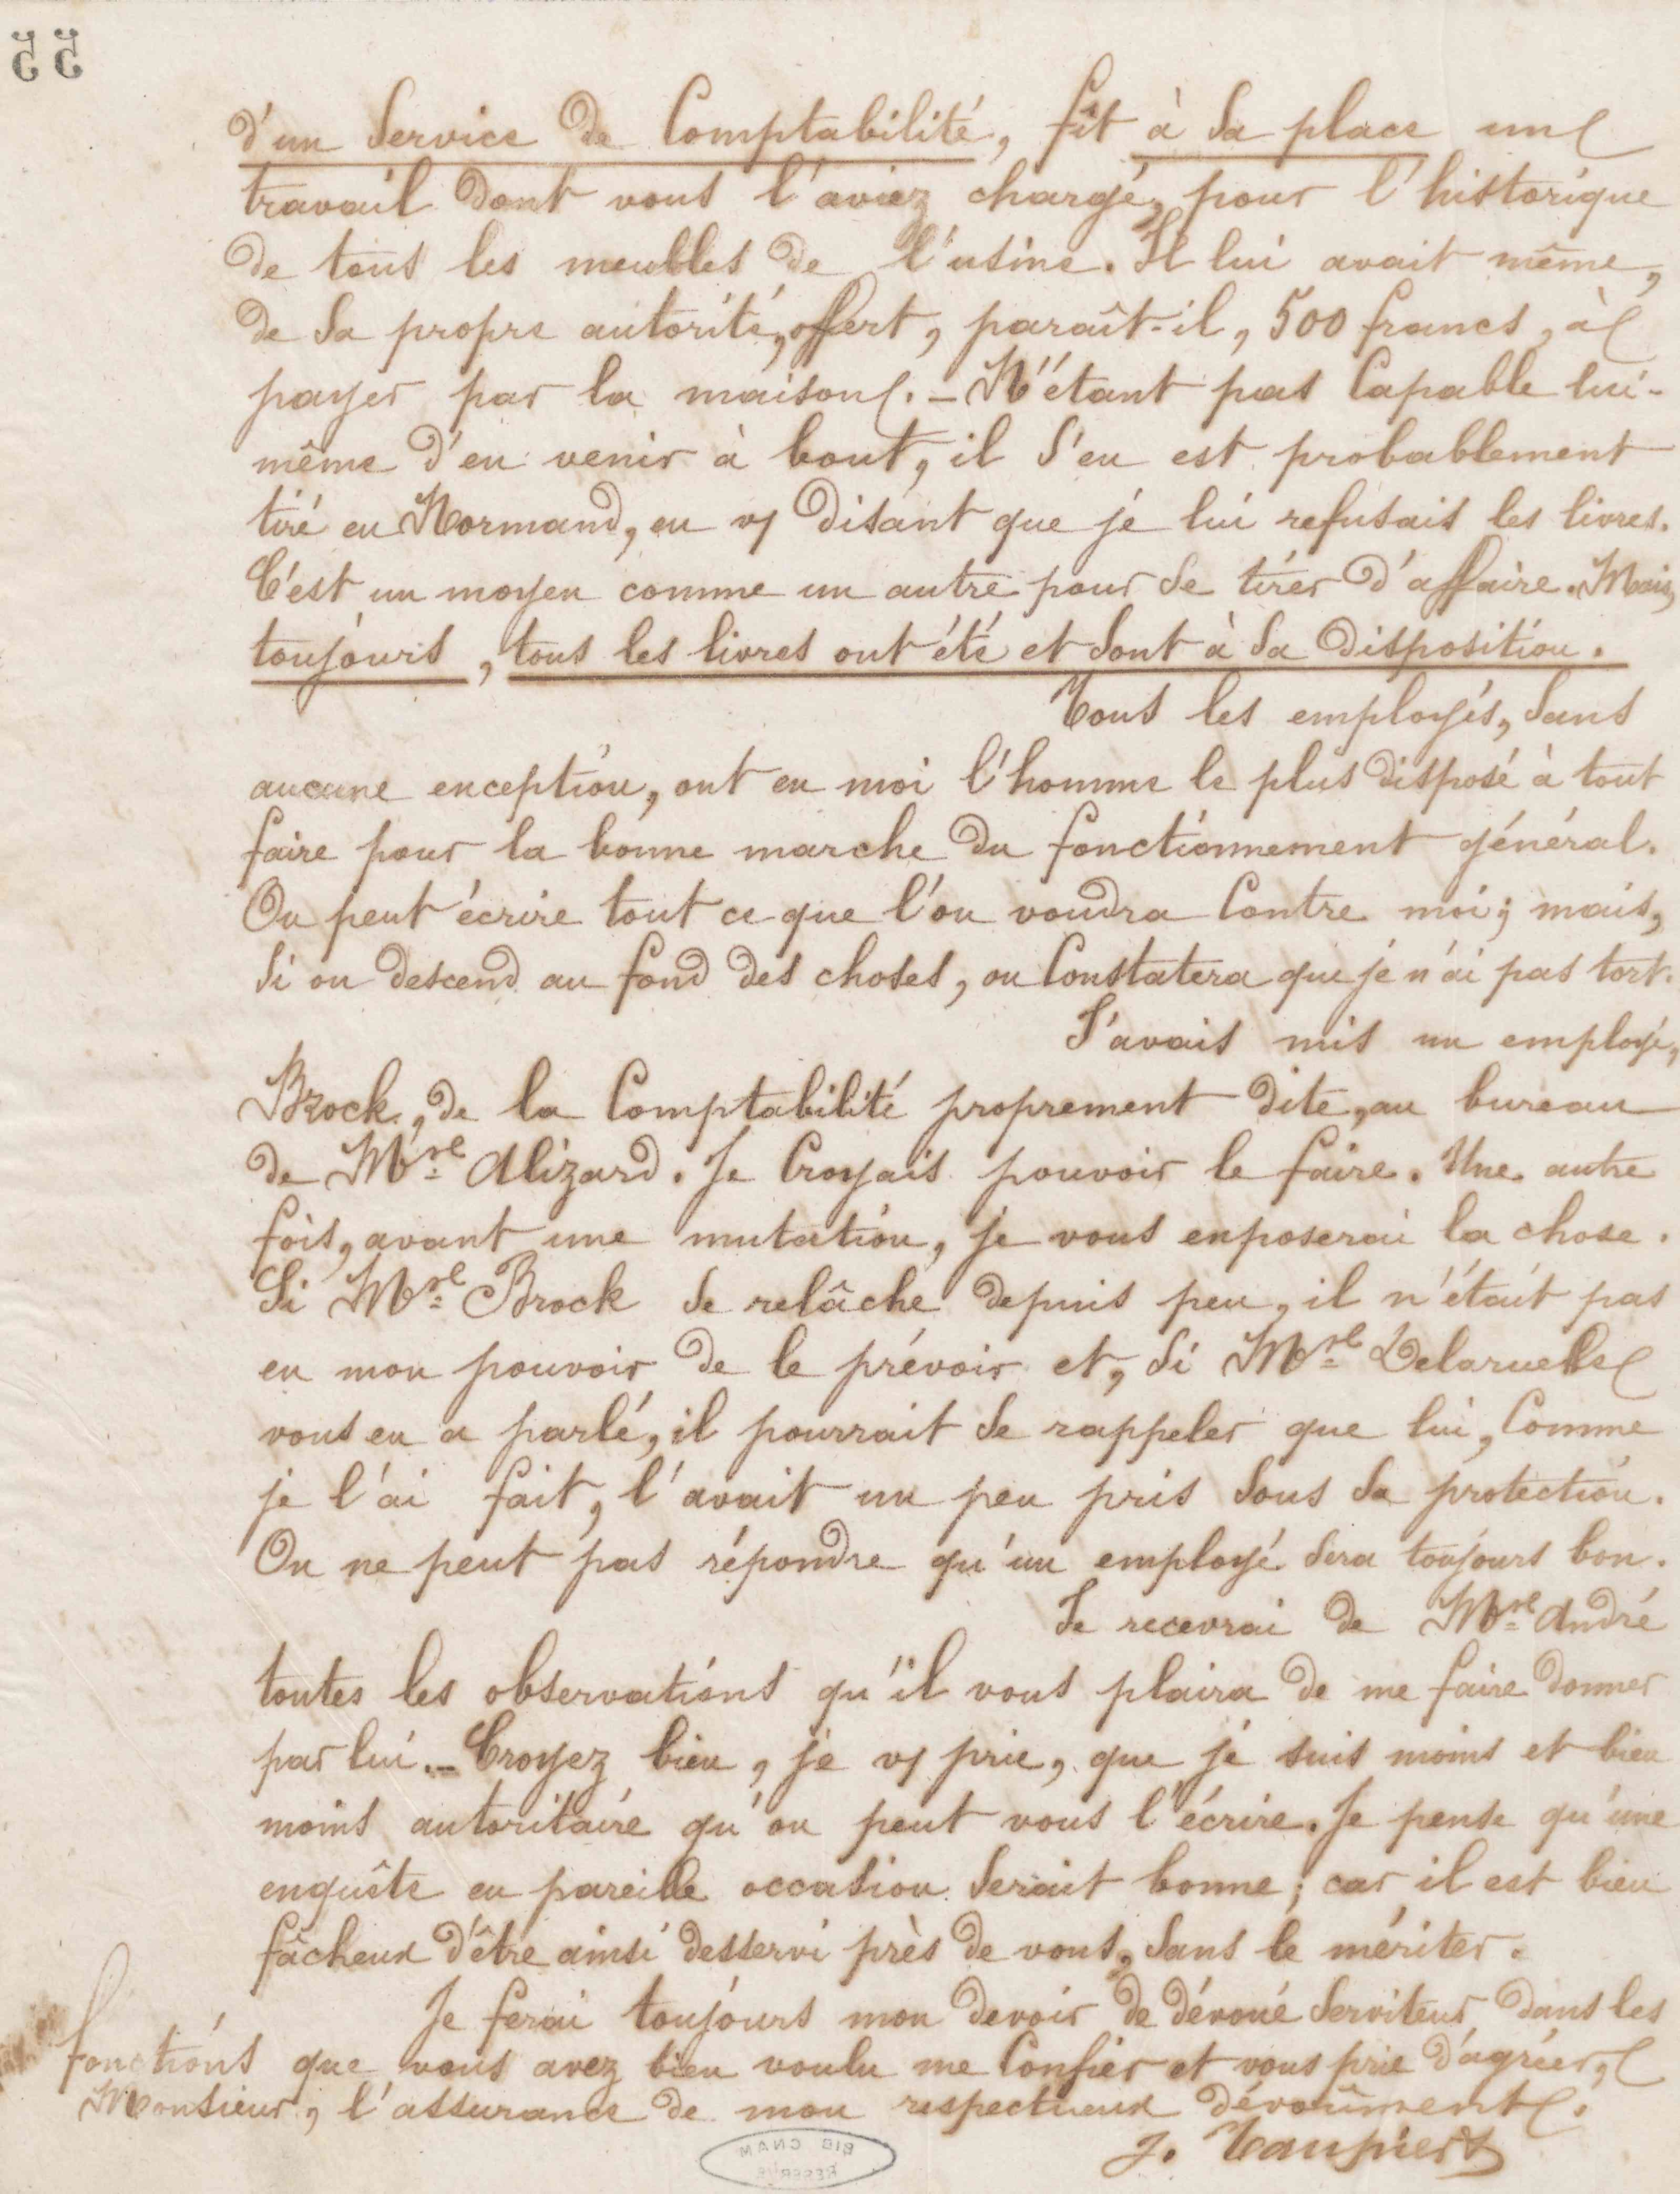 55
d'un Service de Comptabilité, fît à sa place un
travail dont vous l'aviez chargé, pour l'historique
de tous les meubles de l'usine. Il lui avait même,
de sa propre autorité, offert, paraît-il, 500 francs, à
payer par la maison. – N'étant pas capable lui-
même d'en venir à bout, il s'en est probablement
tiré en Normand, en vs disant que je lui refusais les livres.
C'est un moyen comme un autre pour se tirer d'affaire. Mais,
toujours, tous les livres ont été et sont à sa disposition.
Tous les employés, sans
aucune exception, ont en moi l'homme le plus disposé à tout
faire pour la bonne marche du fonctionnement général.
On peut écrire tout ce que l'on voudra contre moi; mais,
si on descend au fond des choses, on constatera que je n'ai pas tort.
J'avais mis un employé,
Brock, de la Comptabilité proprement dite, au bureau
de Mr Alizard. Je croyais pouvoir le faire. Une autre
fois, avant une mutation, je vous exposerai la chose.
Si Mr Brock se relâche depuis peu, il n'était pas
en mon pouvoir de le prévoir et, si Mr Delaruelle
vous en a parlé, il pourrait se rappeler que lui, comme
je l'ai fait, l'avait un peu pris sous sa protection.
On ne peut pas répondre qu'un employé sera toujours bon.
Je recevrai de Mr André
toutes les observations qu'il vous plaira de me faire donner
par lui. – Croyez bien, je vs prie, que je suis moins et bien
moins autoritaire qu'on peut vous l'écrire. Je pense qu'une
enquête en pareille occasion serait bonne; car il est bien
fâcheux d'être ainsi desservi près de vous, sans le mériter.
Je ferai toujours mon devoir de dévoué serviteur dans les
fonctions que vous avez bien voulu me confier et vous prie d'agréer,
Monsieur, l'assurance de mon respectueux dévoûment.
J. Taupier
BIB CNAM
RESERVE